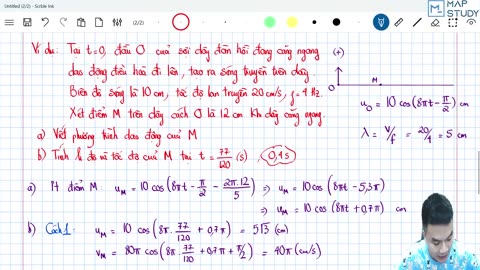 Untitled (2/2) - Scrible Ink
(2/2)
MAP
STUDY
Ví dụ: Tại t=0, đầu O của sợi dây đàn hồi đang căng ngang
dao động điều hoà đi lên, tạo ra sóng truyền trên dây
Biên độ sóng là 10 cm, tốc độ lan truyền 20 cm/s, f = 4 Hz.
Xét điểm M trên dây cách O là 12 cm khi dây căng ngang.
a) Viết phương trình dao động của M
b) Tính li độ và tốc độ của M tại t = 77/120 (s), 0,4s
(+)
O
M
u_O = 10 cos(8πt - π/2) cm
λ = v/f = 20/4 = 5 cm
a) Pt điểm M: u_M = 10 cos(8πt - π/2 - 2π.12/5) ⇒ u_M = 10 cos(8πt - 5,3π)
⇒ u_M = 10 cos(8πt + 0,7π) cm
b) Cách 1: u_M = 10 cos(8π. 77/120 + 0,7π) = 5√3 (cm)
v_M = 80π cos(8π. 77/120 + 0,7π + π/2) = 40π (cm/s)